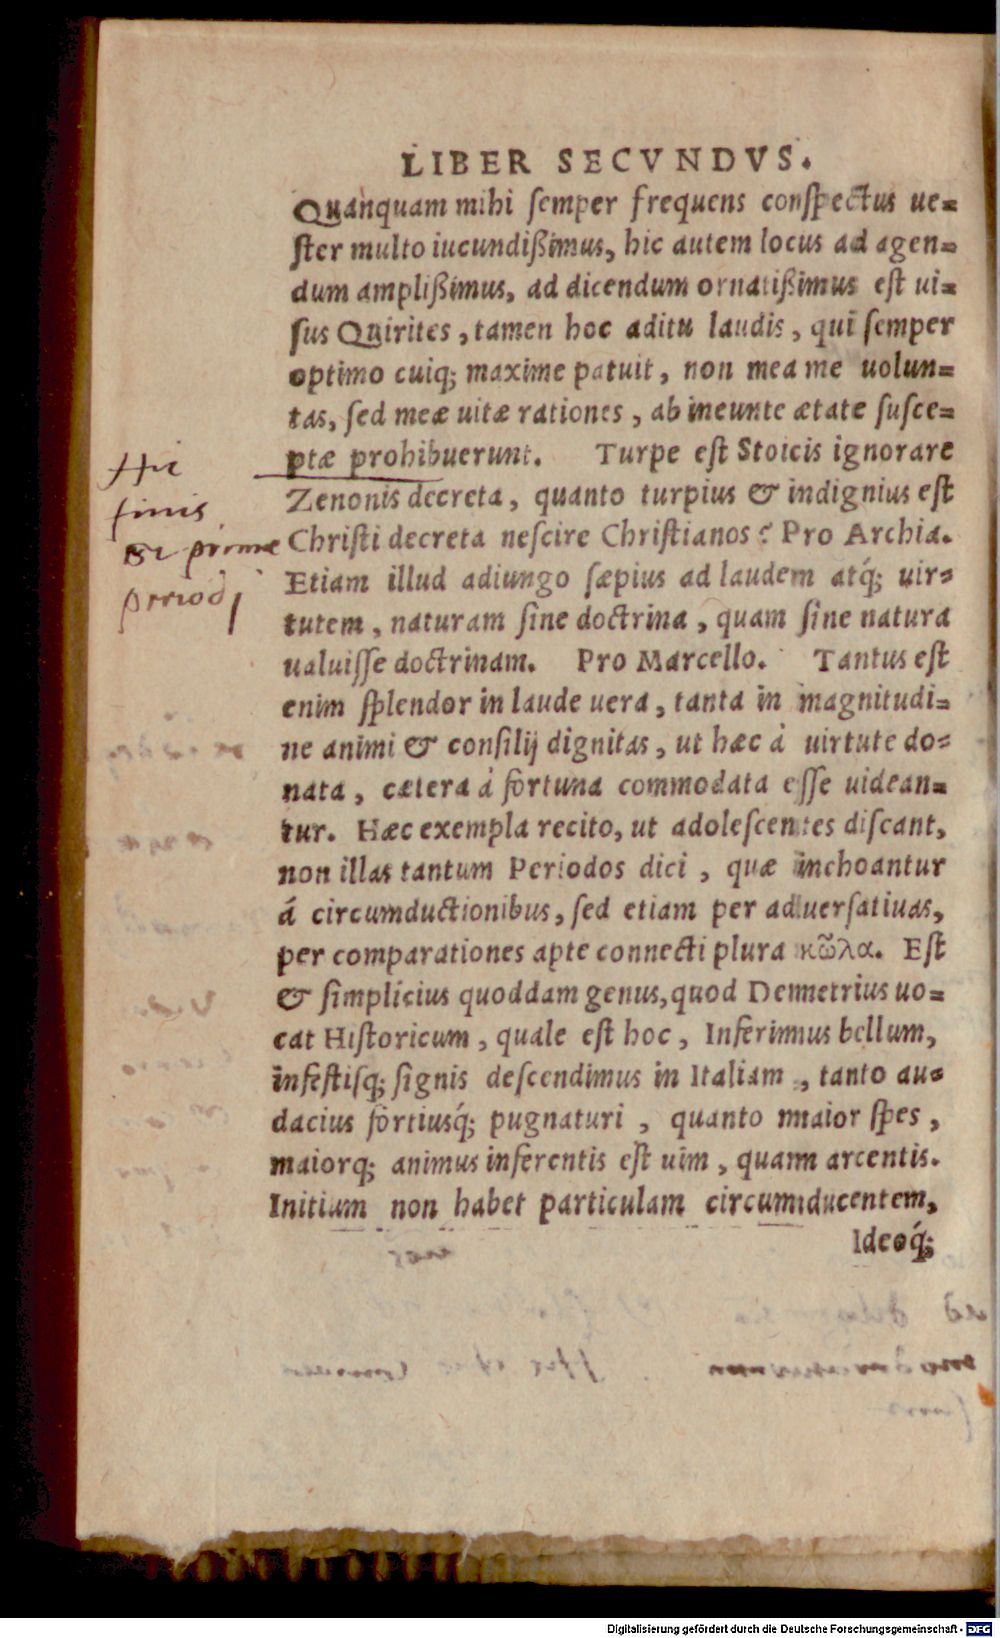 LIBER SECVNDVS.
Quanquam mihi semper frequens conspectus ue=
ster multo iucundißimus, hic autem locus ad agen=
dum amplißimus, ad dicendum ornatißimus est ui=
sus Quirites, tamen hoc aditu laudis, qui semper
optimo cuiq; maxime patuit, non mea me uolun=
tas, sed meæ uitæ rationes, ab ineunte ætate susce=
ptæ prohibuerunt. Turpe est Stoicis ignorare
Zenonis decreta, quanto turpius & indignius est
Christi decreta nescire Christianos? Pro Archia.
Etiam illud adiungo sæpius ad laudem atq́; uir=
tutem, naturam sine doctrina, quam sine natura
ualuisse doctrinam. Pro Marcello. Tantus est
enim splendor in laude uera, tanta in magnitudi=
ne animi & consilij dignitas, ut hæc à uirtute do=
nata, cætera à fortuna commodata esse uidean=
tur. Hæc exempla recito, ut adolescentes discant,
non illas tantum Periodos dici, quæ inchoantur
á circumductionibus, sed etiam per aduersatiuas,
per comparationes apte connecti plura κῶλα. Est
& simplicius quoddam genus, quod Demetrius uo=
cat Historicum, quale est hoc, Inferimus bellum,
infestisq; signis descendimus in Italiam, tanto au=
dacius fortiusq́; pugnaturi, quanto maior spes,
maiorq; animus inferentis est uim, quam arcentis.
Initium non habet particulam circumducentem,
Ideoq́;
Hic
finis
primæ
periodj
Digitalisierung gefördert durch die Deutsche Forschungsgemeinschaft - DFG